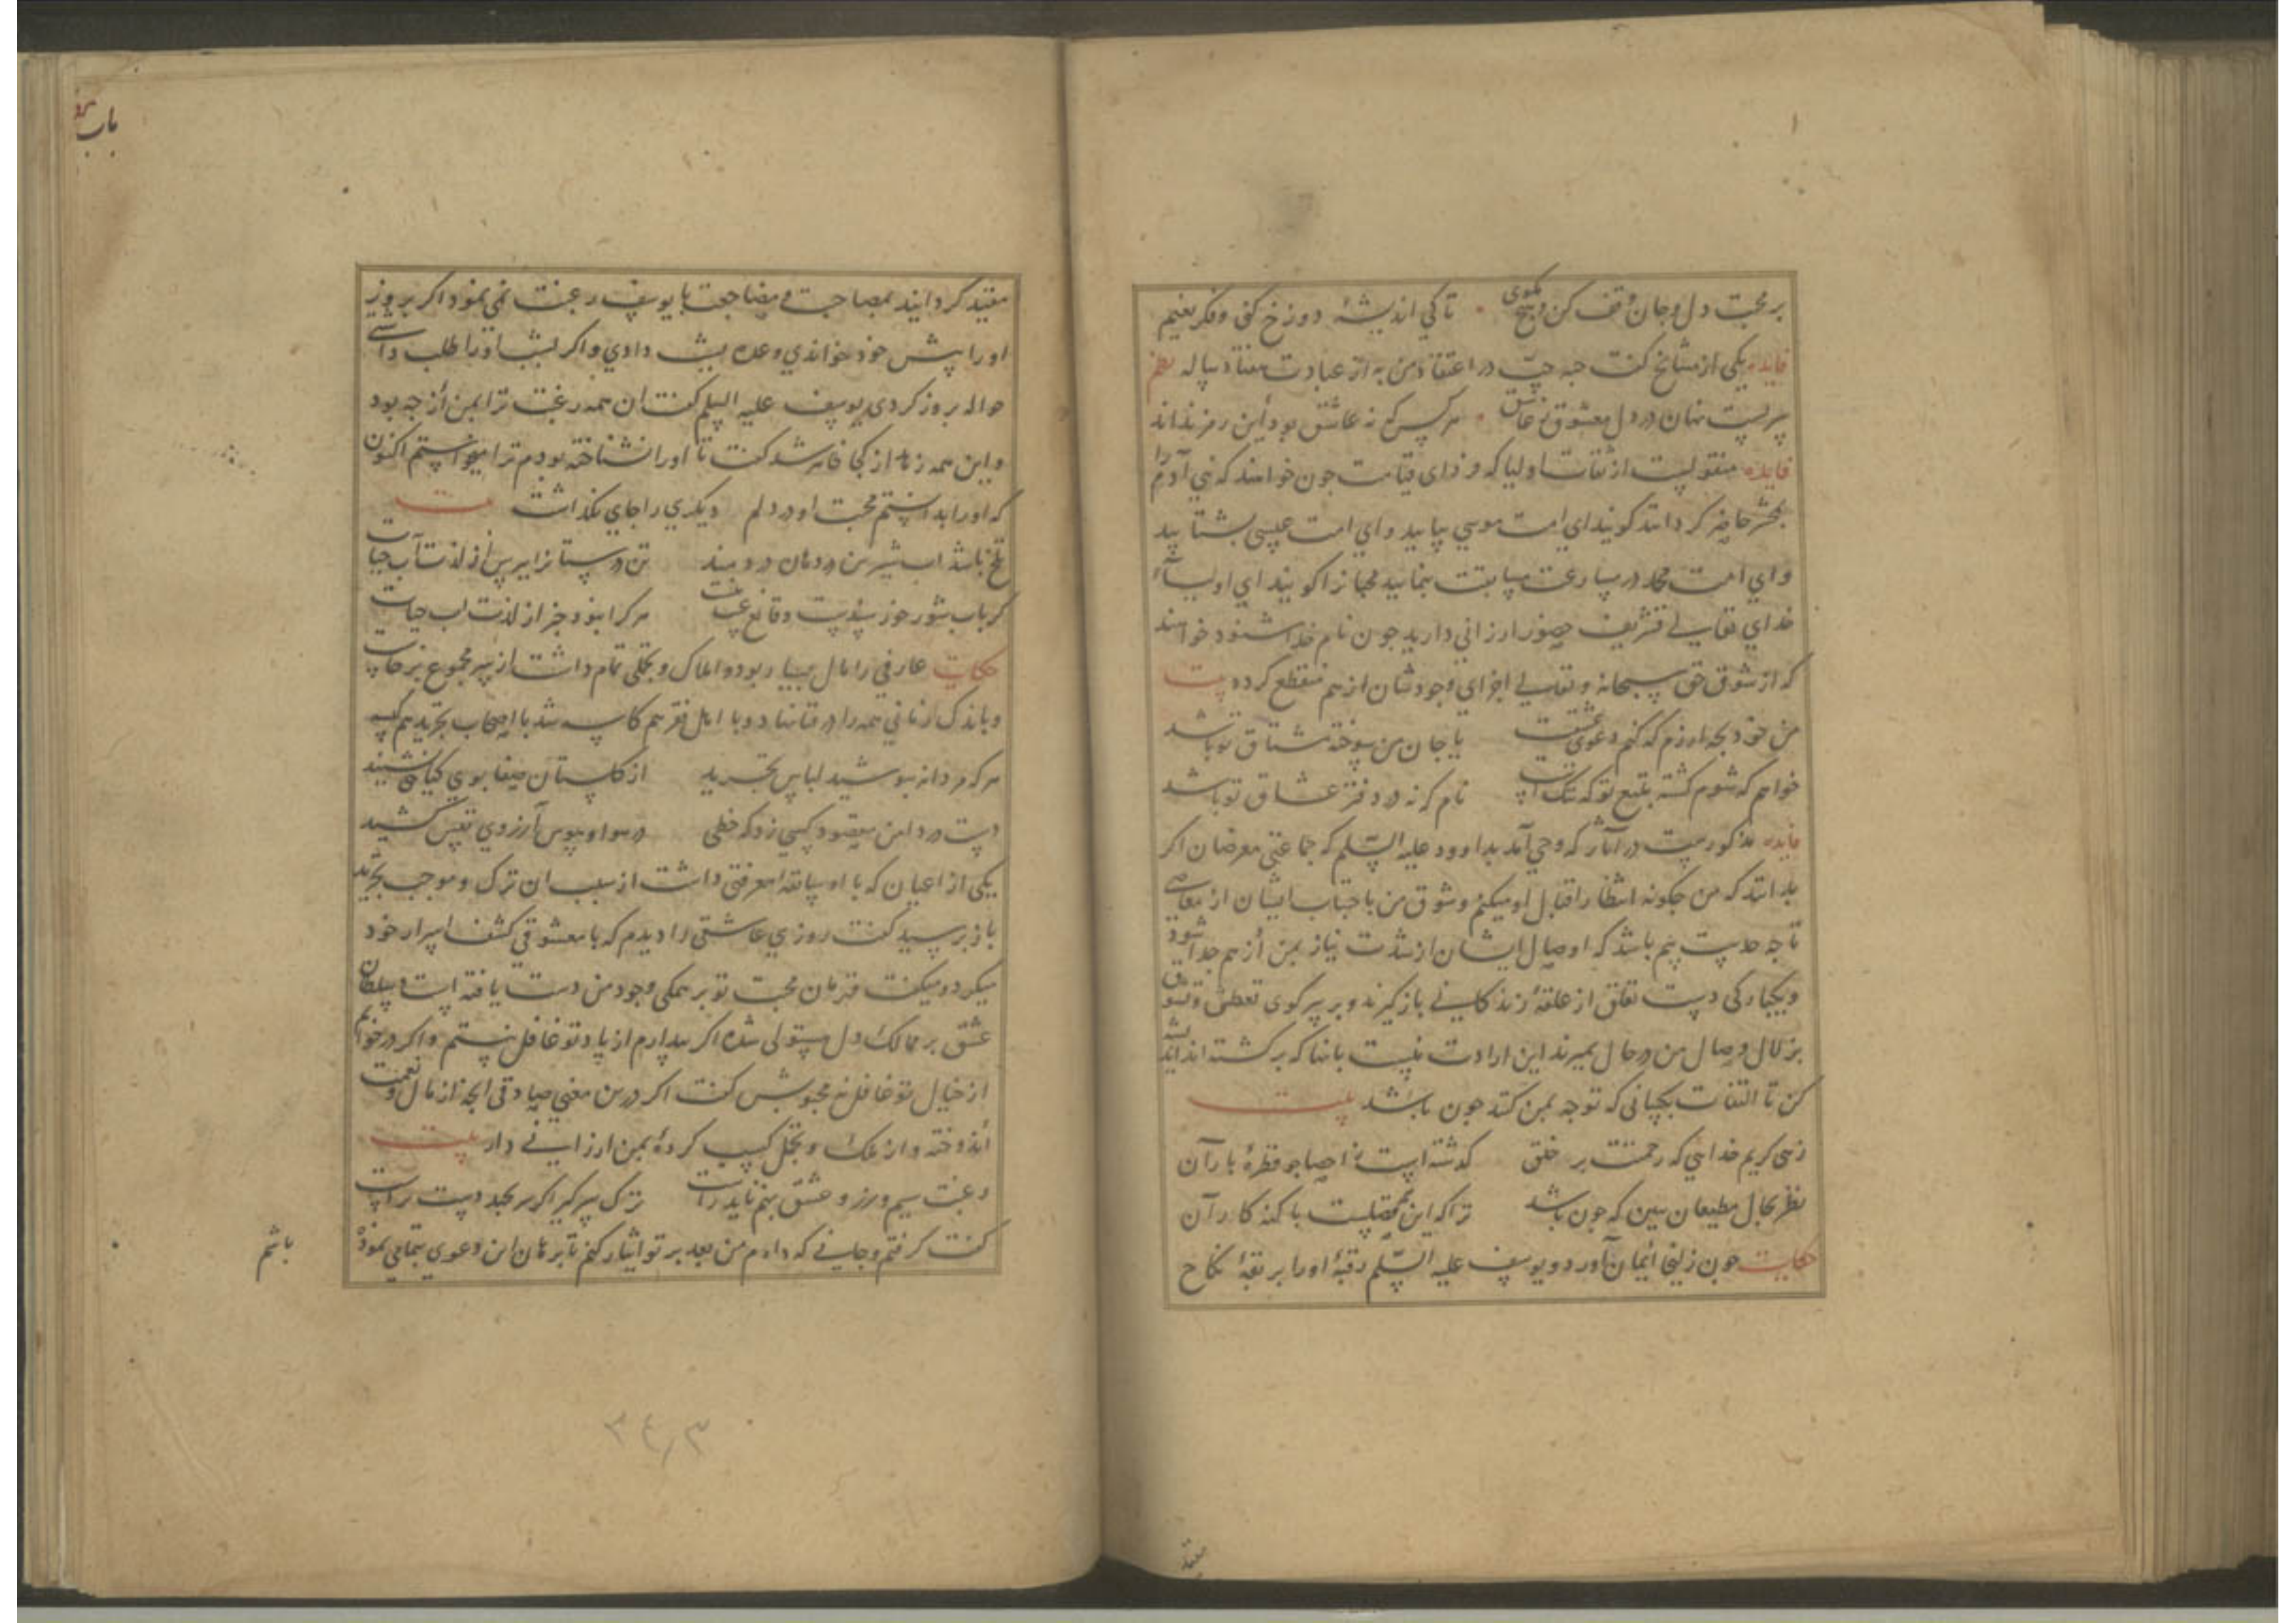 بر محبت دل و جان وقف کن و هیچ مکوی تا کی اندیشهٔ دوزخ کنی و فکر نعیم
فایده یکی از مشایخ کفت حبه حب در اعتقاد من به از عبادت هفتاد ساله نظم
سریست نهان در دل معشوق ز عاشق هر کس که نه عاشق بود این رمز نداند
فایده منقولست از ثقات اولیا که فردای قیامت جون خواهند که بنی آدم را
بمحشر حاضر کردانند کویند ای امت موسی بیایید و ای امت عیسی بشتابید
و ای امت محمد در مسارعت مسابقت بنمایید محبان را کویند ای اولیاء
خدای تعالی تشریف حضور ارزانی دارید جون نام خدا شنوند خواهند
که از شوق حق سبحانه و تعالی اجزای وجودشان از هم منقطع کردد بیت
من خود بجه ارزم که کنم دعوی عشقت یا جان من سوخته مشتاق تو باشد
خواهم که شوم کشته بتیغ تو که ننک است نام که نه در دفتر عشاق تو باشد
فایده مذکورست در آثار که وحی آمد بداوود علیه السلم که جماعتی معرضان اکر
بدانند که من جکونه انتظار اقبال او میکنم و شوق من باجتناب ایشان از معاصی
تا جه حدست بیم باشد که اوصال ایشان از شدت نیاز بمن از هم جدا شود
و بیکبارکی دست تعلق از علقهٔ زندکانی بازکیرند و بر سر کوی تعطش و تشوق
بزلال وصال من در حال بمیرند این ارادت نیست بآنها که برکشته اند اندیشه
کن تا التفات بکسانی که توجه بمن کنند جون باشد بیت
زهی کریم خدایی که رحمتت بر خلق کذشته است ز احصا جو قطرهٔ باران
نظر بحال مطیعان ببین که جون باشد ترا که این همه فضلست با کنه کاران
حکایت جون زلیخا ایمان آورد و یوسف علیه السلم رقبهٔ او را بربقهٔ نکاح
مقید
باب
مقید کردانید بمصاحبت و مضاجعت با یوسف رغبت نمی نمود اکر بروز
او را پیش خود خواندی وعده بشب دادی و اکر بشب او را طلب داشتی
حواله بروز کردی یوسف علیه السلم کفت ان همه رغبت ترا بمن از جه بود
و این همه زهد از کجا ظاهر شد کفت تا او را نشناخته بودم ترا میخواستم اکنون
که او را بدانستم محبت او در دلم دیکری را جای نکذاشت بیت
تلخ باشد اب شیرین در دهان دردمند تن درستان را بپرس از لذت آب حیات
کر باب شور خرسندست و قانع عیب نیست هر کرا نبود خبر از لذت اب حیات
حکایت عارفی را مال بسیار بود و املاک و تجملی تمام داشت از سر مجموع برخاست
و باندک زمانی همه را در باخت و با اهل فقر هم کاسه شد با اصحاب تجرید هم کیسه
هر که مردانه بپوشید لباس تجرید از کلستان صفا بوی کیاهی نشنید
دست در دامن مقصود کسی زد که خطی در هوا و هوس آرزوی نفس کشید
یکی از اعیان که با او سابقهٔ معرفتی داشت از سبب ان ترک و موجب تجرید
باز پرسید کفت روزی عاشقی را دیدم که با معشوقی کشف اسرار خود
میکرد و میکفت قهرمان محبت تو بر همکی وجود من دست یافته است و سلطان
عشق بر ممالک دل مستولی شده اکر بیدارم از یاد تو غافل نیستم و اکر در خوابم
از خیال تو غافل نه محبوبش کفت اکر درین معنی صادقی انجه از مال و نعمت
اندوخته و از ملک و تجمل کسب کردهٔ بمن ارزانی دار بیت
رغبت سیم و زر و عشق بهم ناید راست ترک سر کیر اکر سر بکمند دست تراست
کفت کرفتم و جانی که دارم من بعد بر تو ایثار کنم تا برهان این دعوی بتمامی نموده
باشم
۳۴۳